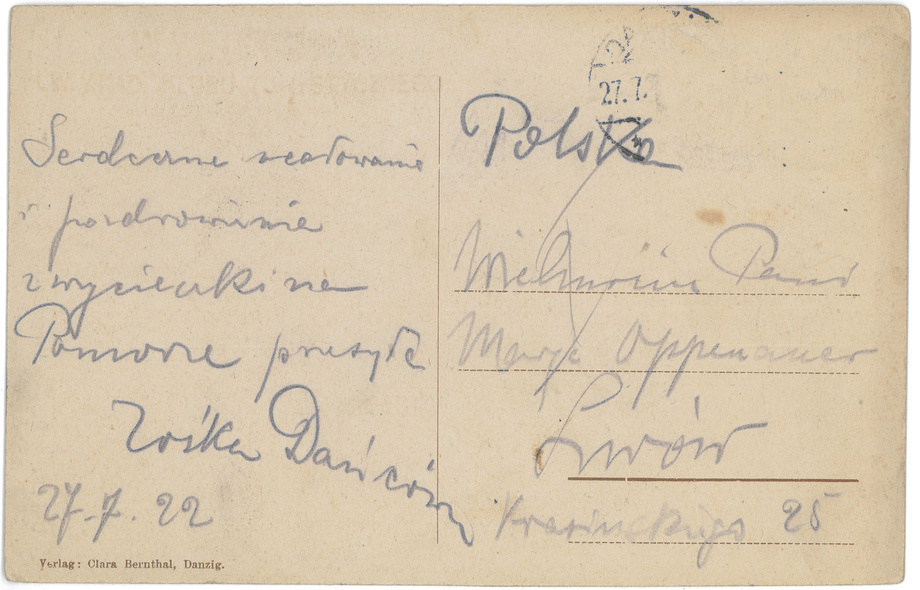 Serdeczne ucałowania
i pozdrowienia
z wycieczki na
Pomorze przesyła
Zośka
27.7.22
Verlag: Clara Bernthal, Danzig.
27.7.
Polska
Wielmożna Pani
Marja Oppenauer
Lwów
Krasickiego 25